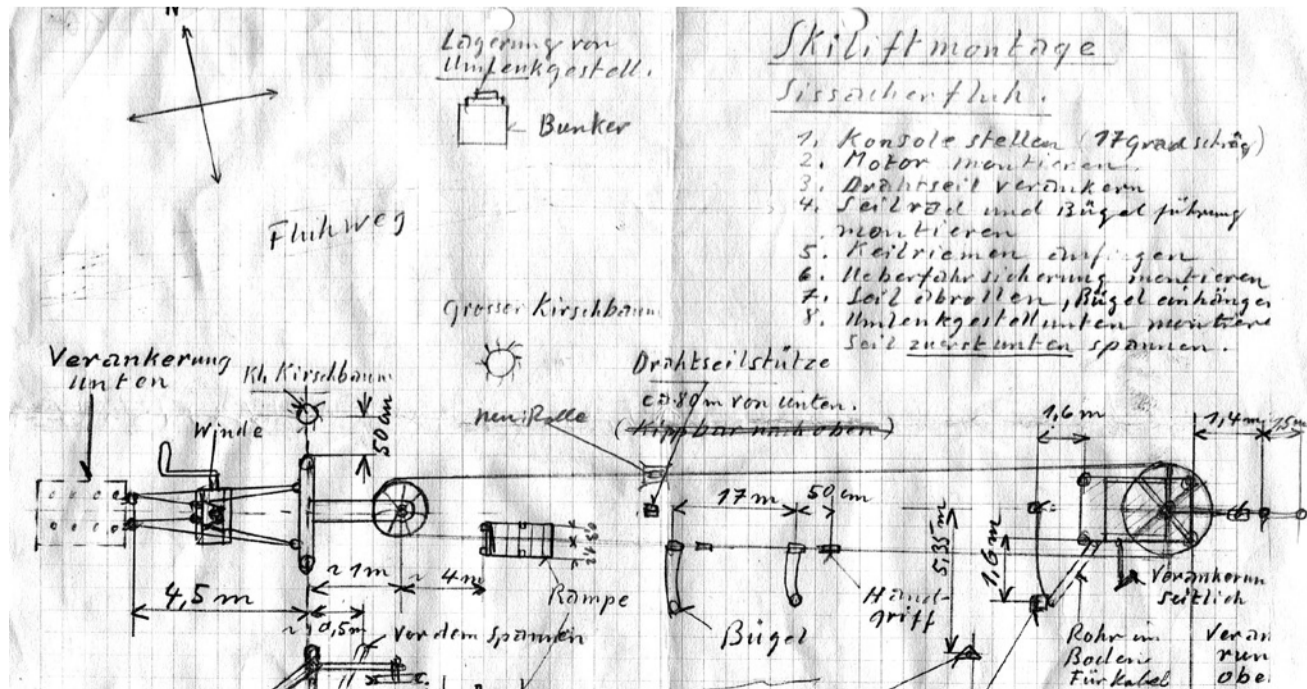 N
Lagerung von
Umlenkgestell.
Bunker
Fluhweg
Skiliftmontage
Sissacherfluh.
1. Konsole stellen (17 Grad schräg)
2. Motor montieren
3. Drahtseil verankern
4. Seilrad und Bügelführung
montieren
5. Keilriemen
6. Ueberfahrsicherung montieren
7. Seil abrollen, Bügel einhängen
8. Umlenkgestell unten montiere
Seil zuerst unten spannen.
Grosser Kirschbaum
Verankerung
unten
Kl. Kirschbaum
Winde
50 cm
neu: Rolle
Drahtseilstütze
ca 80 m von unten.
(Kippbar nach oben)
1,6 m
1,4 m
1,5 m
17 m
50 cm
5,35 m
1,6 m
4,5 m
~ 1 m
~ 4 m
~ 0,5 m
Rampe
Bügel
Hand-
griff
Verankerun
seitlich
vor dem Spannen
Rohr im
Boden
Für Kabel
Veran
run
obe